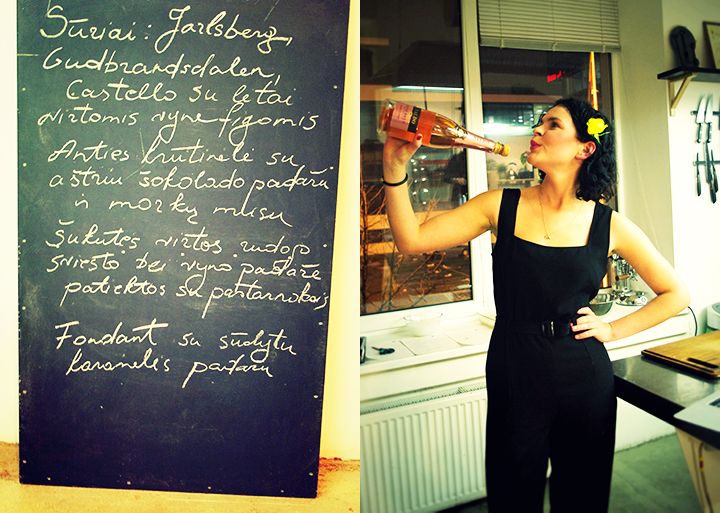 Sūriai: Jarlsberg,
Gudbrandsdalen,
Castello su lėtai
virtomis vyne figomis
Anties krūtinėlė su
aštriu šokolado padažu
ir morkų musu
Šukutės virtos rudojo
sviesto bei vyno padaže
patiektos su pastarnokais
Fondant su sūdytu
karamelės padažu